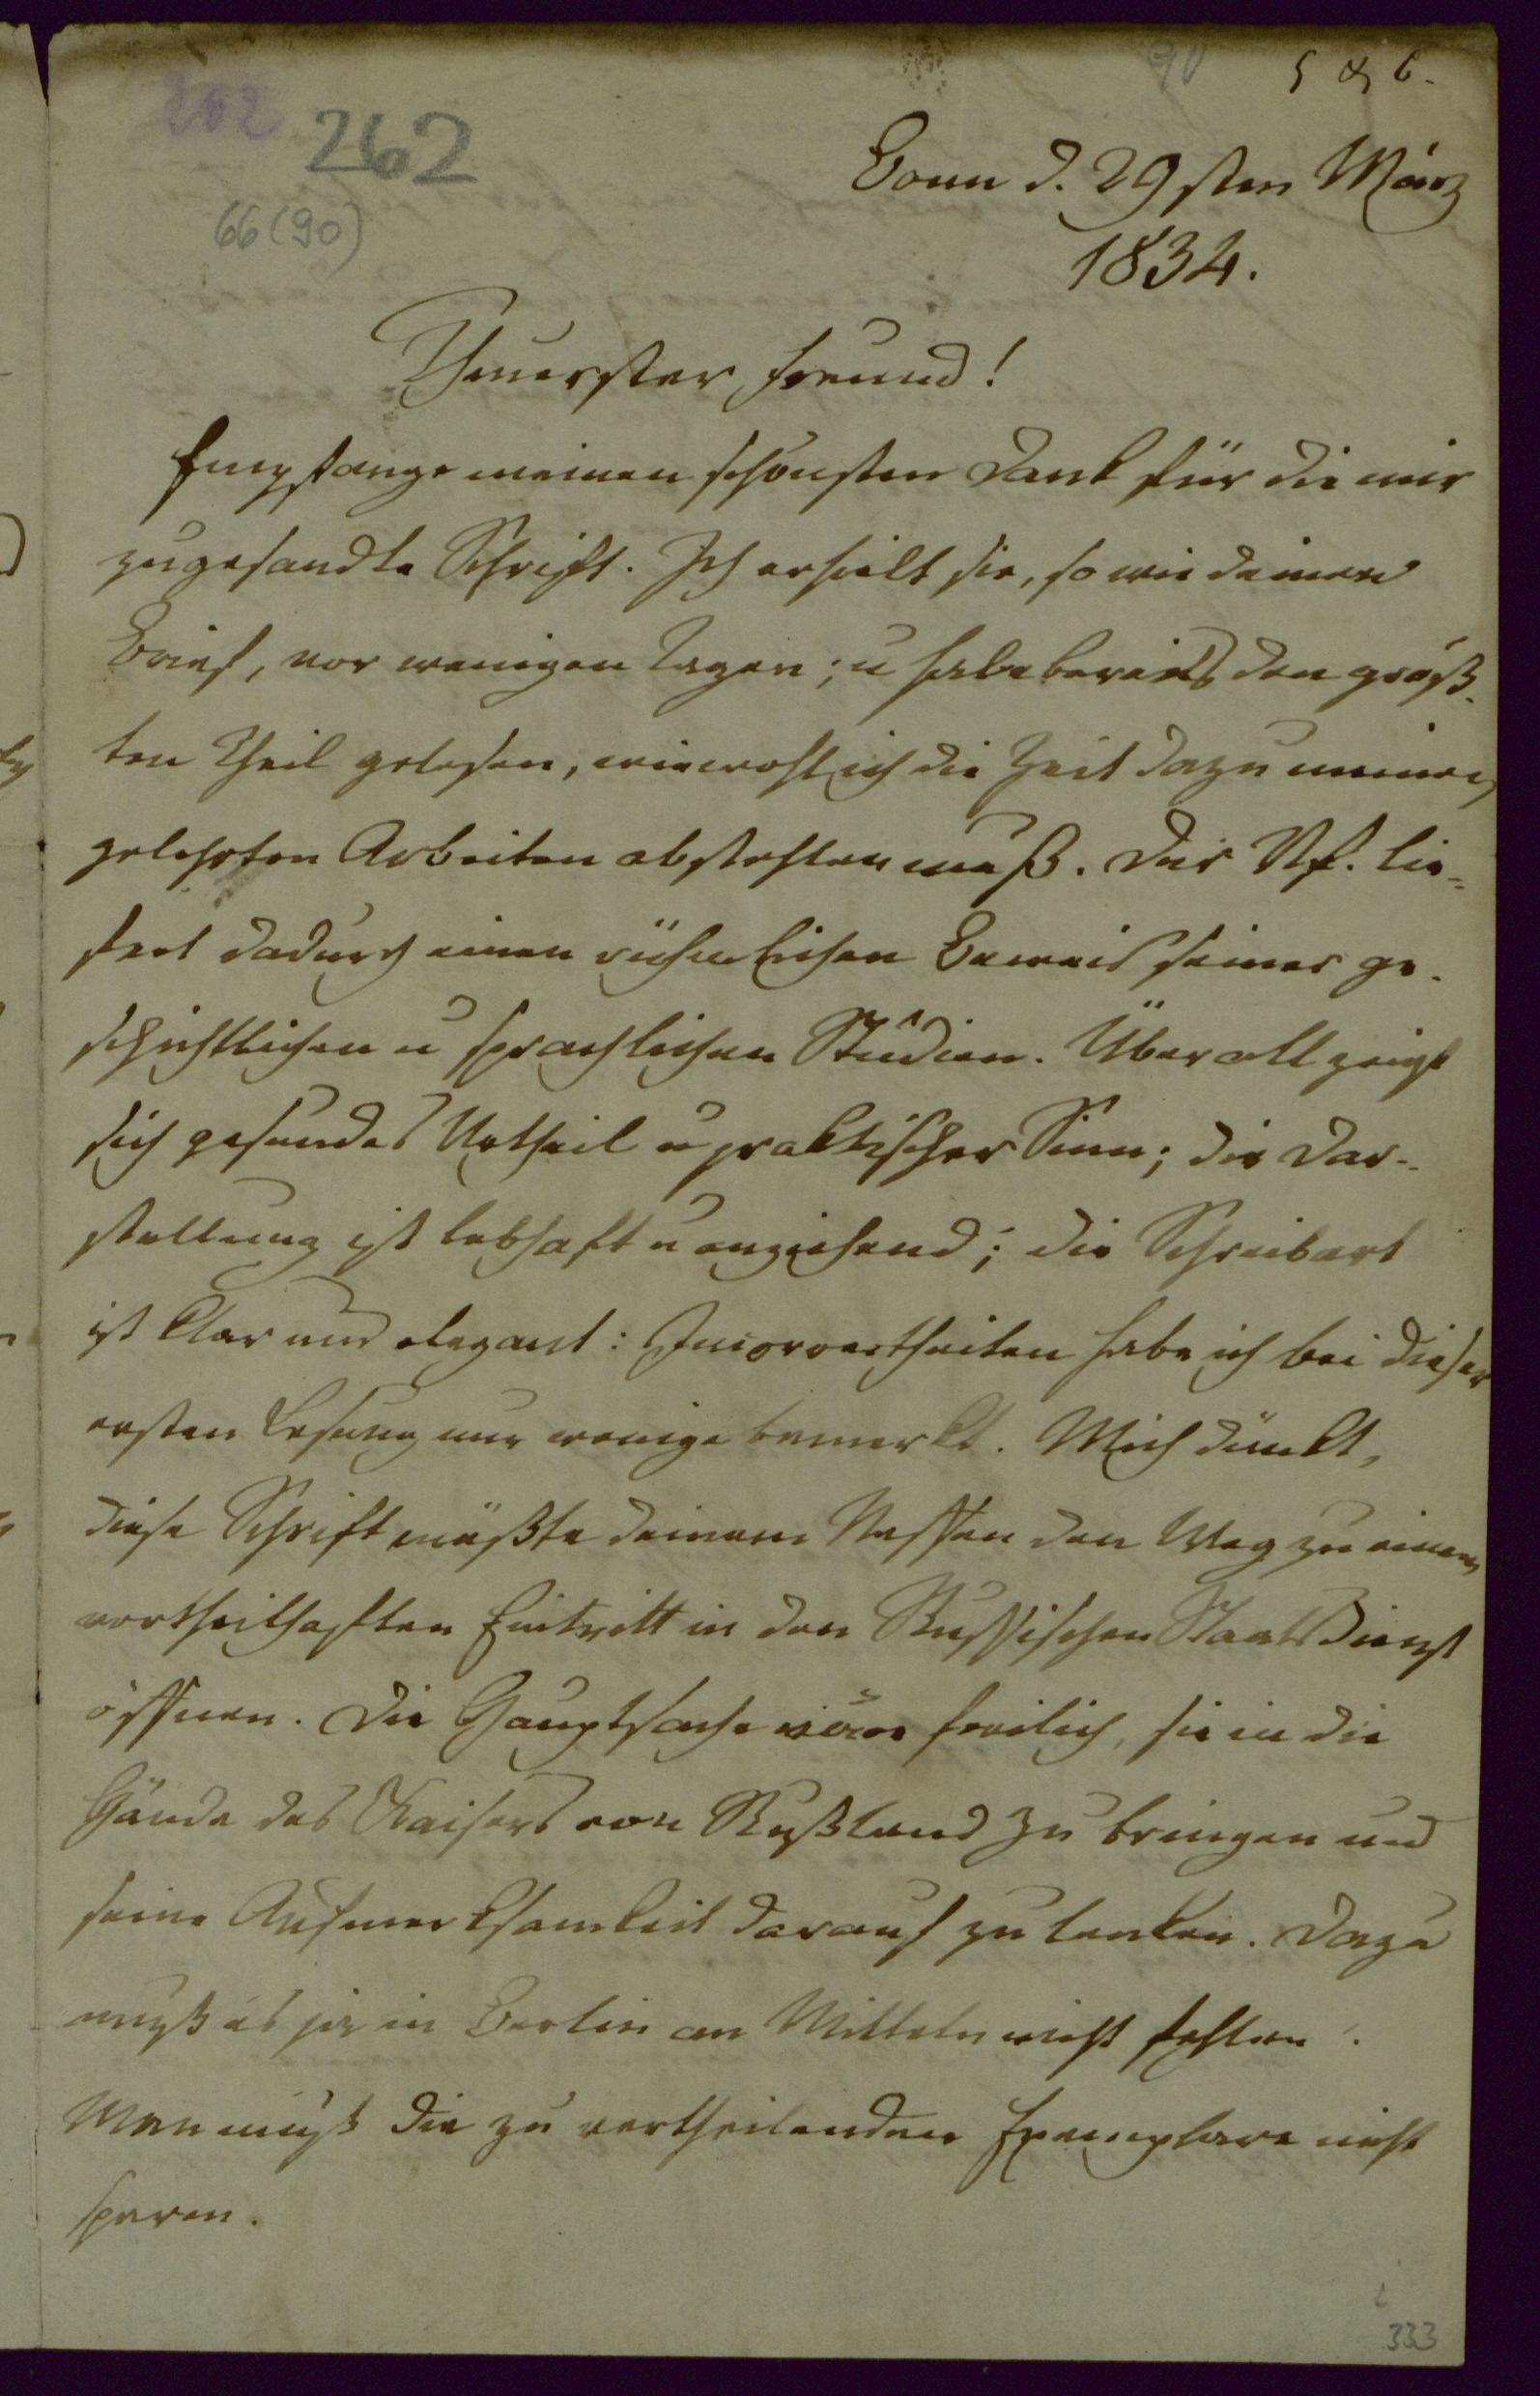 90 5 & 6.
202 262
Bonn d. 29sten März
66(90)
1834.
Theuerster Freund!
Empfange meinen schönsten Dank für die mir
zugesandte Schrift. Ich erhielt sie, so wie deinen
Brief, vor wenigen Tagen; u habe bereits den größ-
ten Theil gelesen, wiewohl ich die Zeit dazu meinen
gelehrten Arbeiten abstehlen muß. Der Vf. lie=
fert dadurch einen rühmlichen Beweis seiner ge-
schichtlichen u sprachlichen Studien. Überall zeigt
sich gesundes Urtheil u praktischer Sinn; die Dar-
stellung ist lebhaft u anziehend; die Schreibart
ist klar und elegant: Incorrectheiten habe ich bei dieser
ersten Lesung nur wenige bemerkt. Mich dünkt,
diese Schrift müßte deinem Neffen den Weg zu einem
vortheilhaften Eintritt in den Russischen Staatsdienst
öffnen. Die Hauptsache wäre freilich, sie in die
Hände des Kaisers von Rußland zu bringen und
seine Aufmerksamkeit darauf zu lenken. Dazu
muß es ja in Berlin an Mitteln nicht fehlen.
Man muß die zu vertheilenden Exemplare nicht
sparen.
333